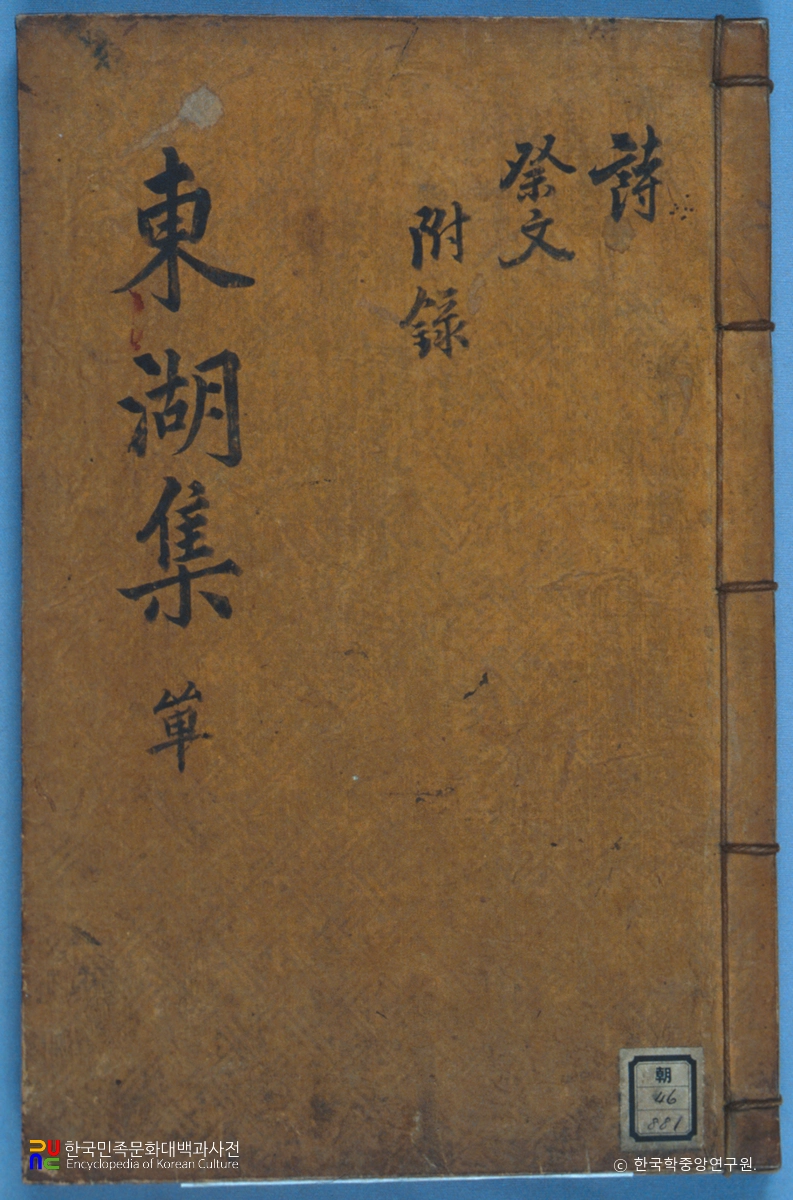 詩
祭文
附錄
東湖集 單
朝
46
881
한국민족문화대백과사전
Encyclopedia of Korean Culture
© 한국학중앙연구원.